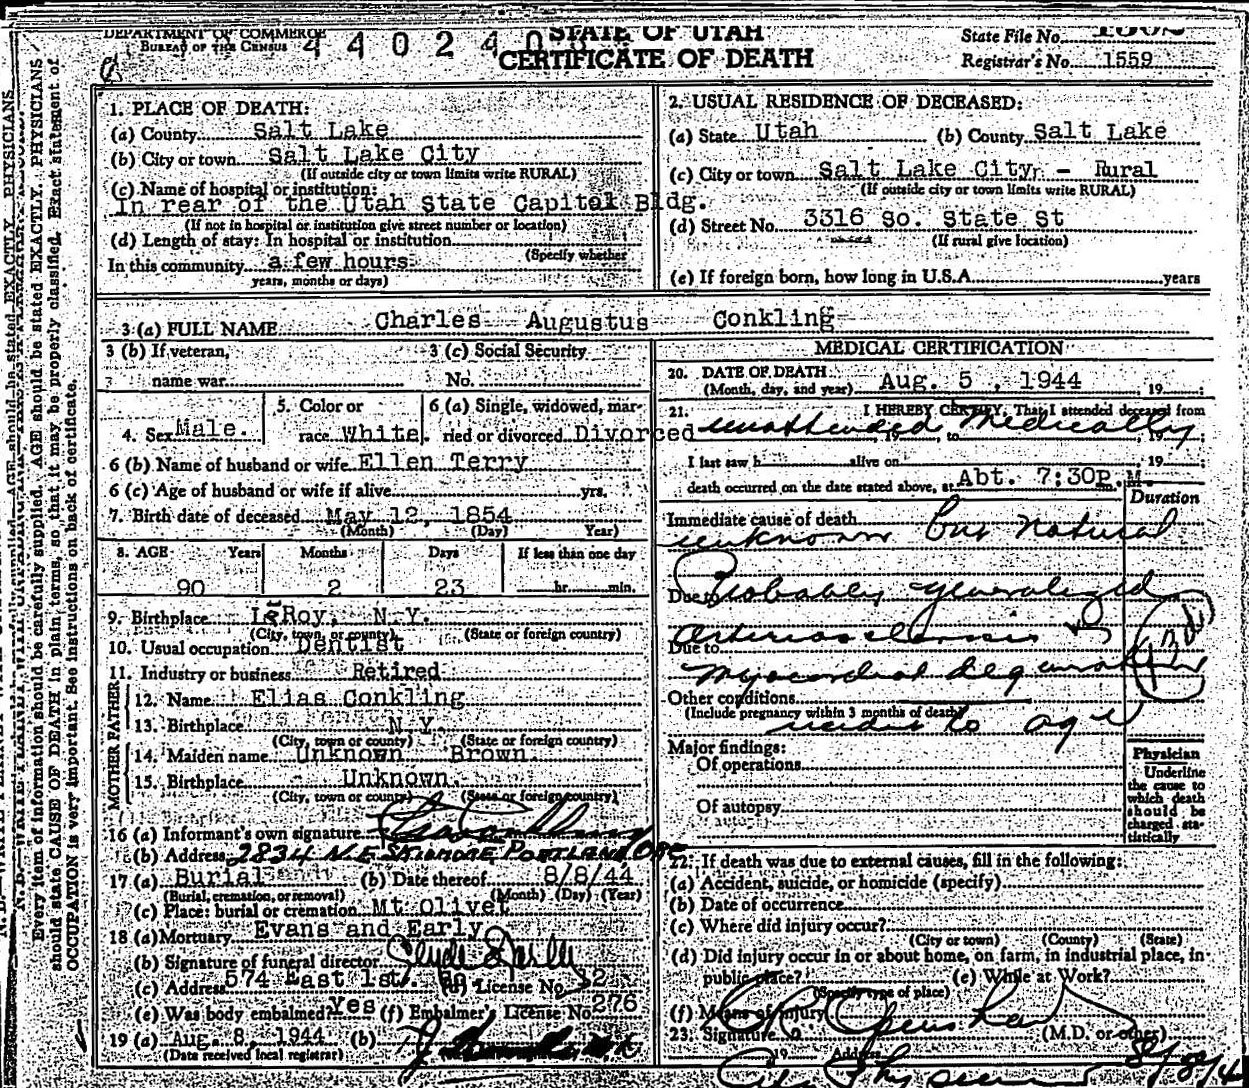 DEPARTMENT OF COMMERCE
BUREAU OF THE CENSUS
4 4 0 2 4 0
STATE OF UTAH
CERTIFICATE OF DEATH
State File No.
Registrar's No. 1559
1. PLACE OF DEATH:
(a) County Salt Lake
(b) City or town Salt Lake City
(If outside city or town limits write RURAL)
(c) Name of hospital or institution:
In rear of the Utah State Capitol Bldg.
(If not in hospital or institution give street number or location)
(d) Length of stay: In hospital or institution
(Specify whether
In this community a few hours
years, months or days)
2. USUAL RESIDENCE OF DECEASED:
(a) State Utah (b) County Salt Lake
(c) City or town Salt Lake City, - Rural
(If outside city or town limits write RURAL)
(d) Street No. 3316 So. State St
(If rural give location)
(e) If foreign born, how long in U.S.A. years
3 (a) FULL NAME Charles Augustus Conkling
3 (b) If veteran,
name war
3 (c) Social Security
No.
4. Sex Male.
5. Color or
race White.
6 (a) Single, widowed, mar-
ried or divorced Divorced
6 (b) Name of husband or wife Ellen Terry
6 (c) Age of husband or wife if alive yrs.
7. Birth date of deceased May 12, 1854
(Month) (Day) Year)
8. AGE Years Months Days If less than one day
90 2 23 hr. min.
9. Birthplace LeRoy, N.Y.
(City, town, or county) (State or foreign country)
10. Usual occupation Dentist
11. Industry or business Retired
FATHER
12. Name Elias Conkling
13. Birthplace N.Y.
(City, town or county) (State or foreign country)
MOTHER
14. Maiden name Unknown Brown.
15. Birthplace Unknown.
(City, town or county) (State or foreign country)
16 (a) Informant's own signature
(b) Address 2834 N.E SKIDMORE PORTLAND ORE
17 (a) Burial (b) Date thereof 8/8/44
(Burial, cremation, or removal) (Month) (Day) (Year)
(c) Place: burial or cremation Mt Olivet
18 (a) Mortuary Evans and Early
(b) Signature of funeral director
(c) Address 574 East 1st. So. (d) License No. 32
(e) Was body embalmed? Yes (f) Embalmer's License No. 276
19 (a) Aug. 8, 1944 (b)
(Date received local registrar)
MEDICAL CERTIFICATION
20. DATE OF DEATH:
(Month, day, and year) Aug. 5, 1944, 19
21. I HEREBY CERTIFY, That I attended deceased from
unattended, 19 to medically, 19
I last saw h alive on, 19
death occurred on the date stated above, at Abt. 7:30P.M.
Duration
Immediate cause of death
unknown but natural
Due to Probably generalized
arteriosclerosis
Due to
myocardial degeneration
Other conditions
(Include pregnancy within 3 months of death)
to age
Major findings:
Of operations
Of autopsy
Physician
Underline
the cause to
which death
should be
charged sta-
tistically
22. If death was due to external causes, fill in the following:
(a) Accident, suicide, or homicide (specify)
(b) Date of occurrence
(c) Where did injury occur?
(City or town) (County) (State)
(d) Did injury occur in or about home, on farm, in industrial place, in
public place? (e) While at Work?
(Specify type of place)
(f) Means of injury
23. Signature (M.D. or other)
19 Address
Every item of information should be carefully supplied. AGE should be stated EXACTLY. PHYSICIANS
should state CAUSE OF DEATH in plain terms, so that it may be properly classified. Exact statement of
OCCUPATION is very important. See instructions on back of certificate.